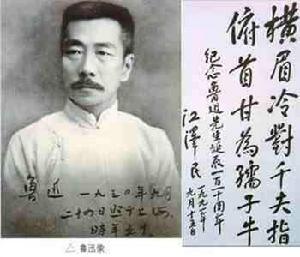 橫眉冷對千夫指
俯首甘為孺子牛
纪念魯迅先生诞辰一百一十周年
江澤民
一九九一年
九月十五日
魯迅 一九三〇年九月
二十四日照于上海,
時年五十
△ 鲁迅像